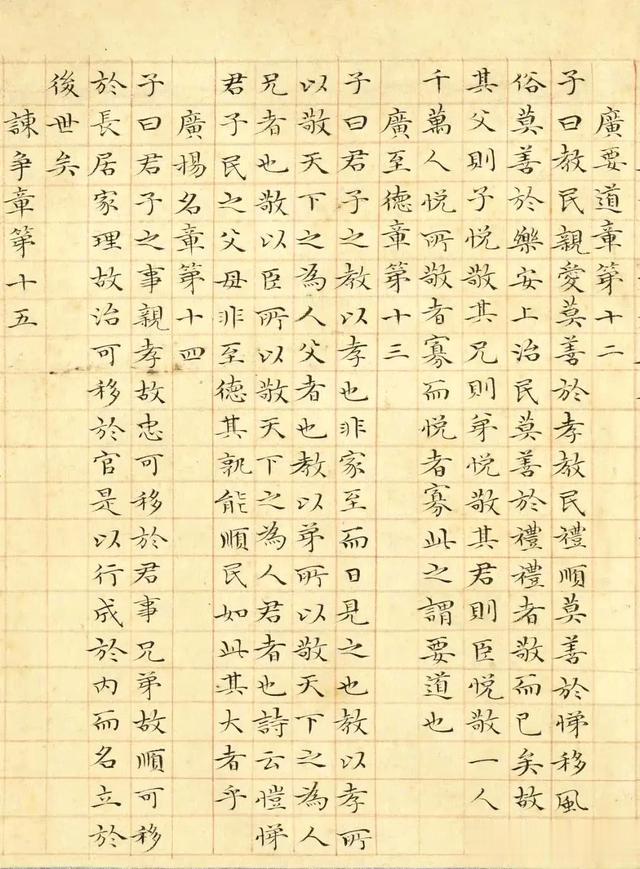 廣要道章第十二
子曰教民親愛莫善於孝教民禮順莫善於悌移風
俗莫善於樂安上治民莫善於禮禮者敬而已矣故
其父則子悦敬其兄則弟悦敬其君則臣悦敬一人
千萬人悦所敬者寡而悦者寡此之謂要道也
廣至德章第十三
子曰君子之教以孝也非家至而日見之也教以孝所
以敬天下之為人父者也教以弟所以敬天下之為人
兄者也敬以臣所以敬天下之為人君者也詩云愷悌
君子民之父母非至德其孰能順民如此其大者乎
廣揚名章第十四
子曰君子之事親孝故忠可移於君事兄弟故順可移
於長居家理故治可移於官是以行成於內而名立於
後世矣
諫争章第十五